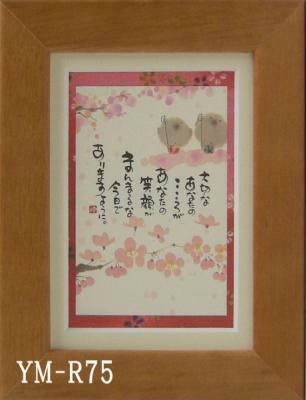 大切な
あなたの
こころが
あなたの
笑顔が
まんまるな
今日で
ありますように。
YM-R75